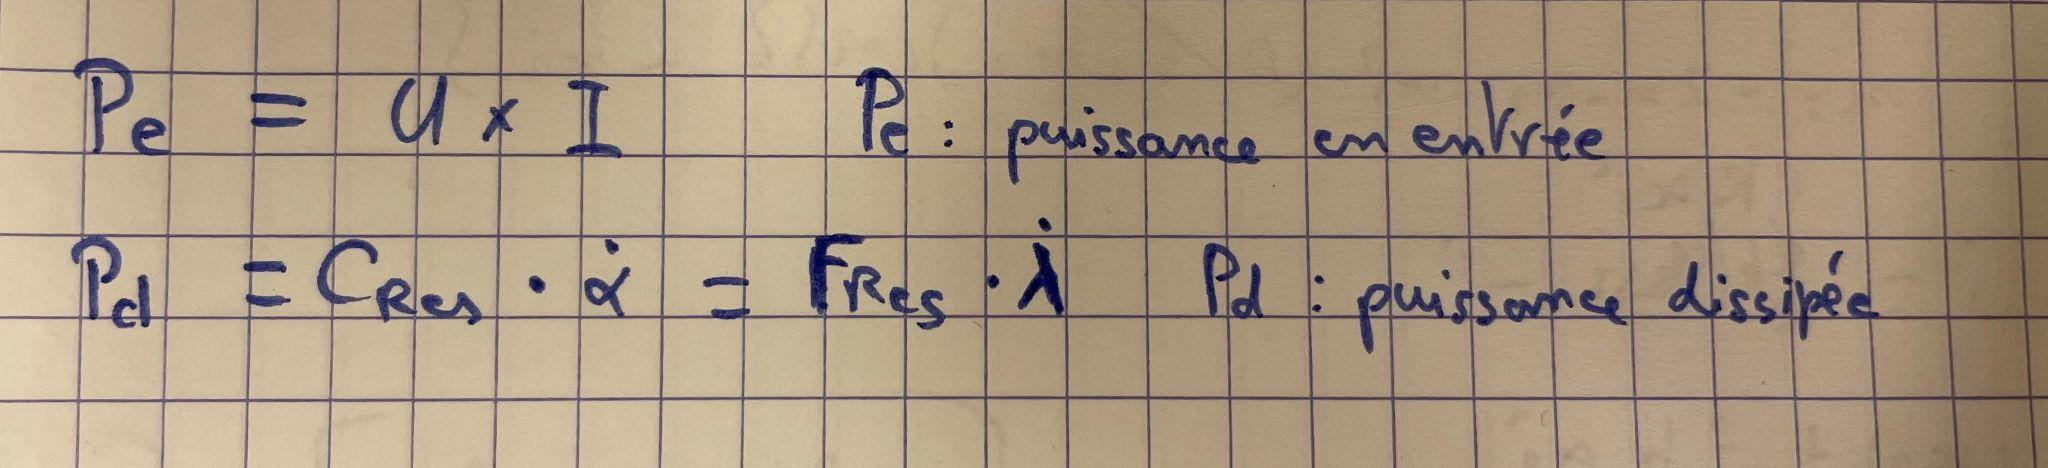 Pe = U × I Pe : puissance en entrée
Pd = CRes · α̇ = FRes · λ̇ Pd : puissance dissipée